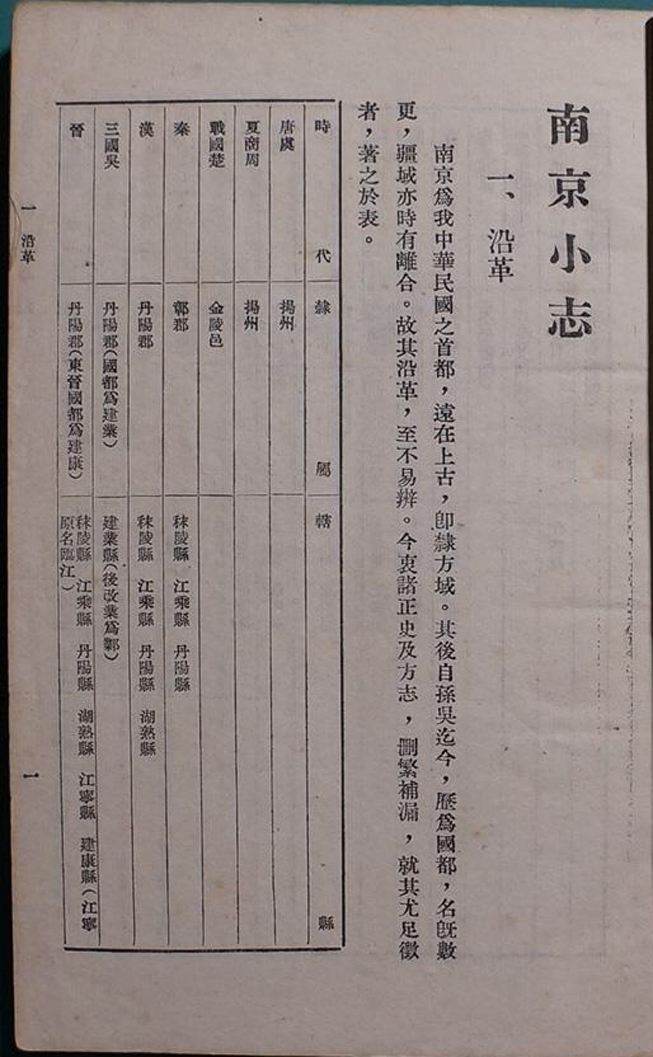 南京小志
一、沿革
南京爲我中華民國之首都，遠在上古，卽隸方域。其後自孫吳迄今，歷爲國都，名旣數
更，疆域亦時有離合。故其沿革，至不易辨。今衷諸正史及方志，刪繁補漏，就其尤足徵
者，著之於表。
時代 隸屬 轄縣
唐虞 揚州
夏商周 揚州
戰國楚 金陵邑
秦 鄣郡 秣陵縣 江乘縣 丹陽縣
漢 丹陽郡 秣陵縣 江乘縣 丹陽縣 湖熟縣
三國吳 丹陽郡（國都爲建業） 建業縣（後改業爲鄴）
晉 丹陽郡（東晉國都爲建康） 秣陵縣 江乘縣 丹陽縣 湖熟縣 江寧縣 建康縣（江寧
原名臨江）
一 沿革
一